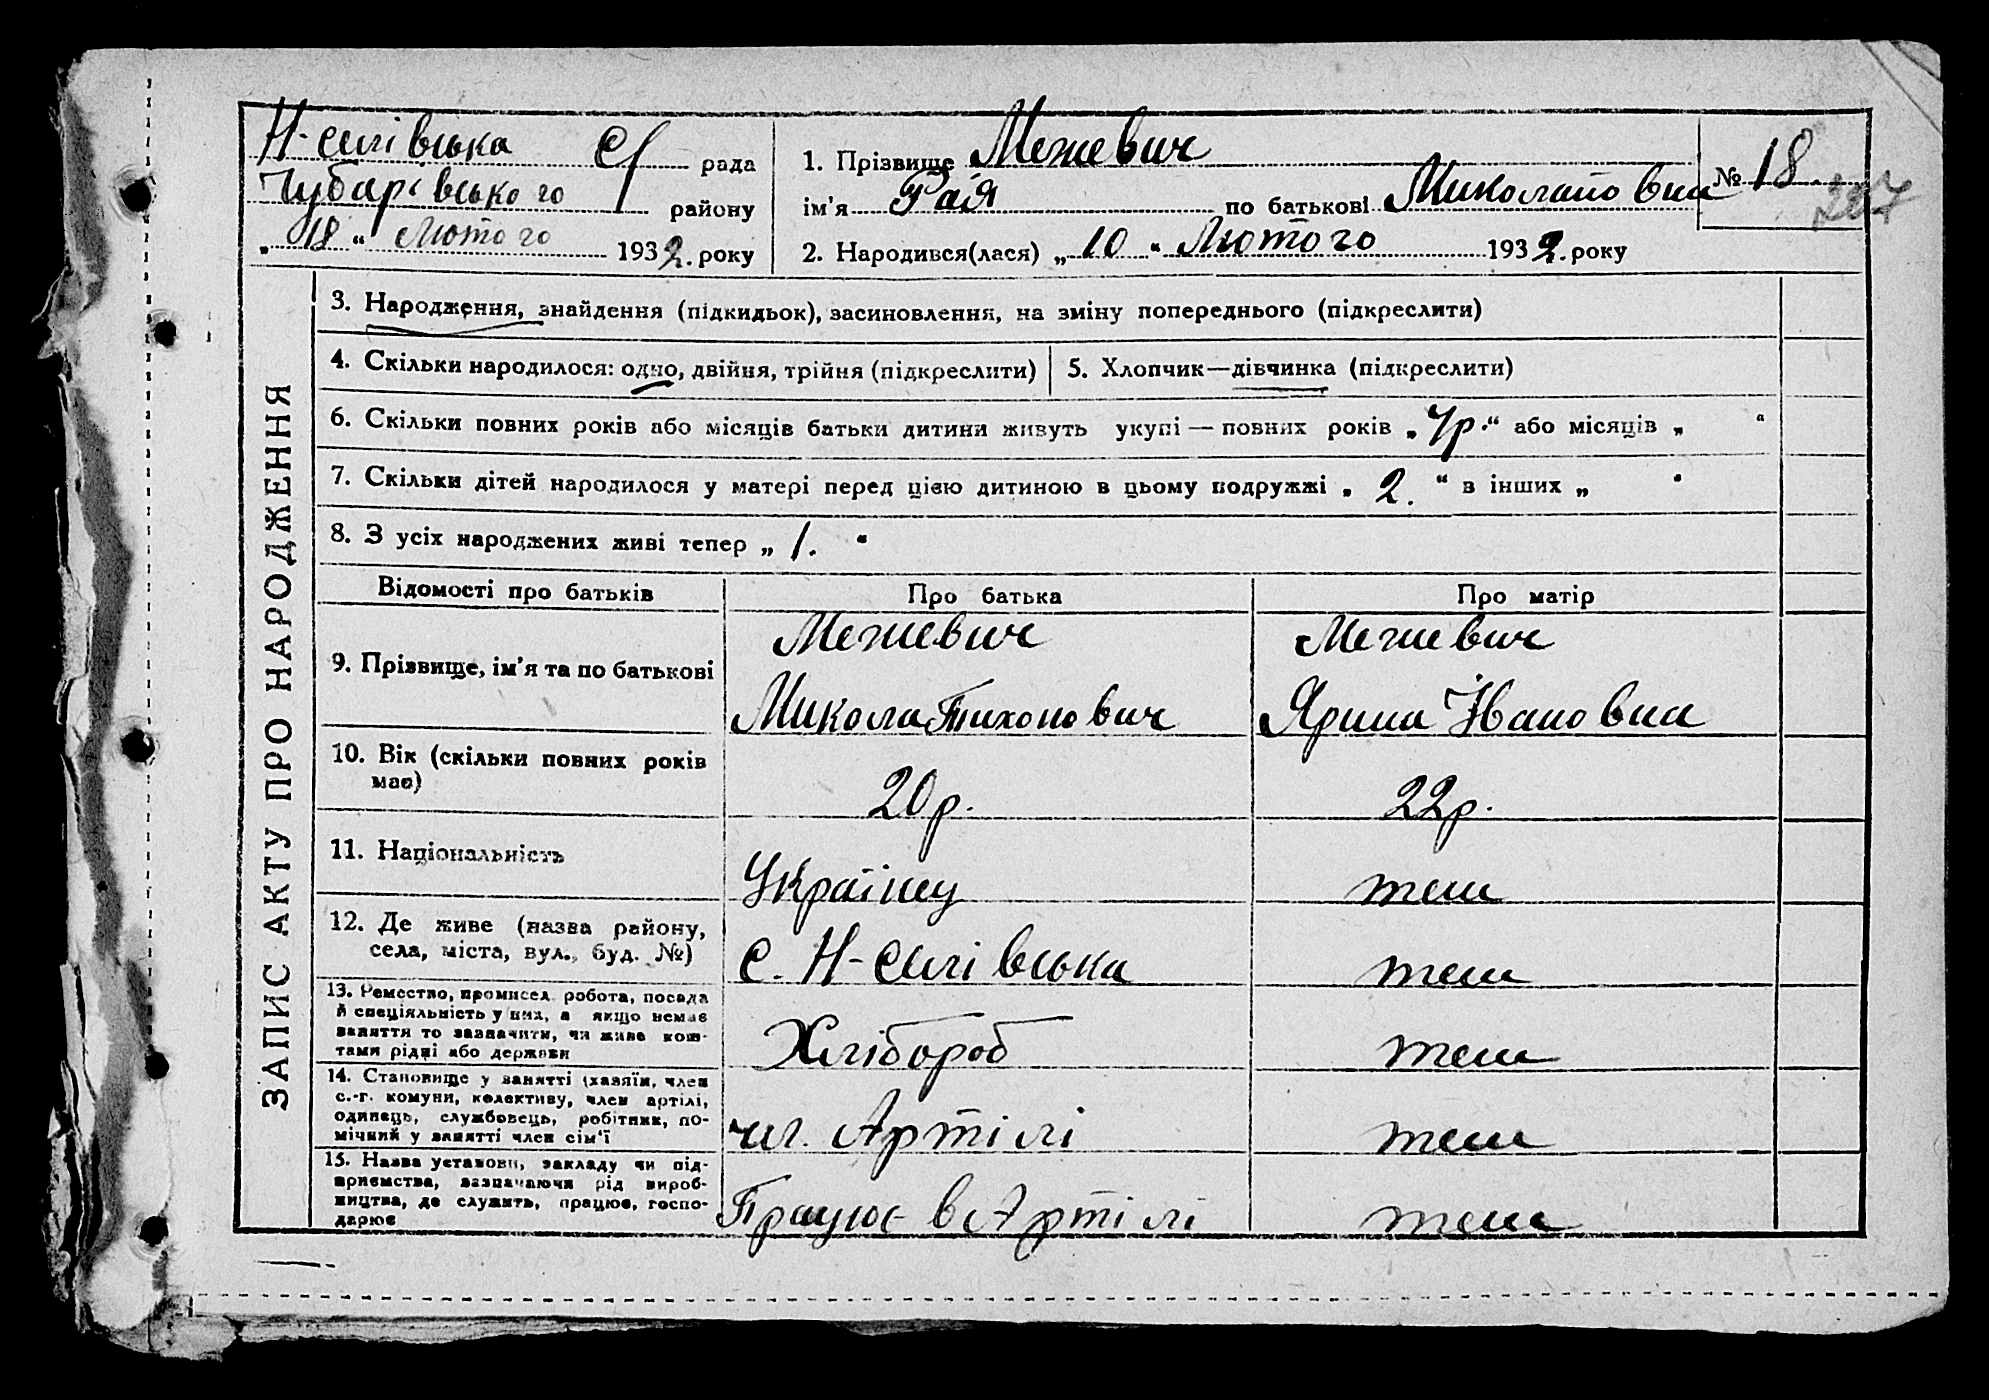 Н-Селівська С/ рада
Чубарівського району
„ 18 “ Лютого 1932. року
1. Прізвище Межевич
ім'я Рая по батькові Миколаївна
№ 18
207
2. Народився(лася) „ 10 “ Лютого 1932. року
ЗАПИС АКТУ ПРО НАРОДЖЕННЯ
3. Народження, знайдення (підкидьок), засиновлення, на зміну попереднього (підкреслити)
4. Скільки народилося: одно, двійня, трійня (підкреслити)
5. Хлопчик—дівчинка (підкреслити)
6. Скільки повних років або місяців батьки дитини живуть укупі — повних років „ 4р. “ або місяців „ “
7. Скільки дітей народилося у матері перед цією дитиною в цьому подружжі „ 2. “ в інших „ “
8. З усіх народжених живі тепер „ 1. “
Відомості про батьків Про батька Про матір
9. Прізвище, ім'я та по батькові
Межевич
Микола Тихонович
Межевич
Ярина Івановна
10. Вік (скільки повних років
має)
20р.
22р.
11. Національність
Українц
теш
12. Де живе (назва району,
села, міста, вул., буд. №)
С. Н-Селівська
теш
13. Ремество, промисел. робота, посада
й спеціяльність у них, а якщо немає
заняття то зазначити, чи живе кош-
тами рідні або держави
Хлібороб
теш
14. Становище у занятті (хазяїн, член
с.-г. комуни, колективу, член артілі,
одинець, службовець, робітник, по-
мічний у занятті член сім'ї
чл. Артілі
теш
15. Назва установи, закладу чи під-
приємства, зазначаючи рід вироб-
ництва, де служить, працює, госпо-
дарює
Працює в Артілі
теш